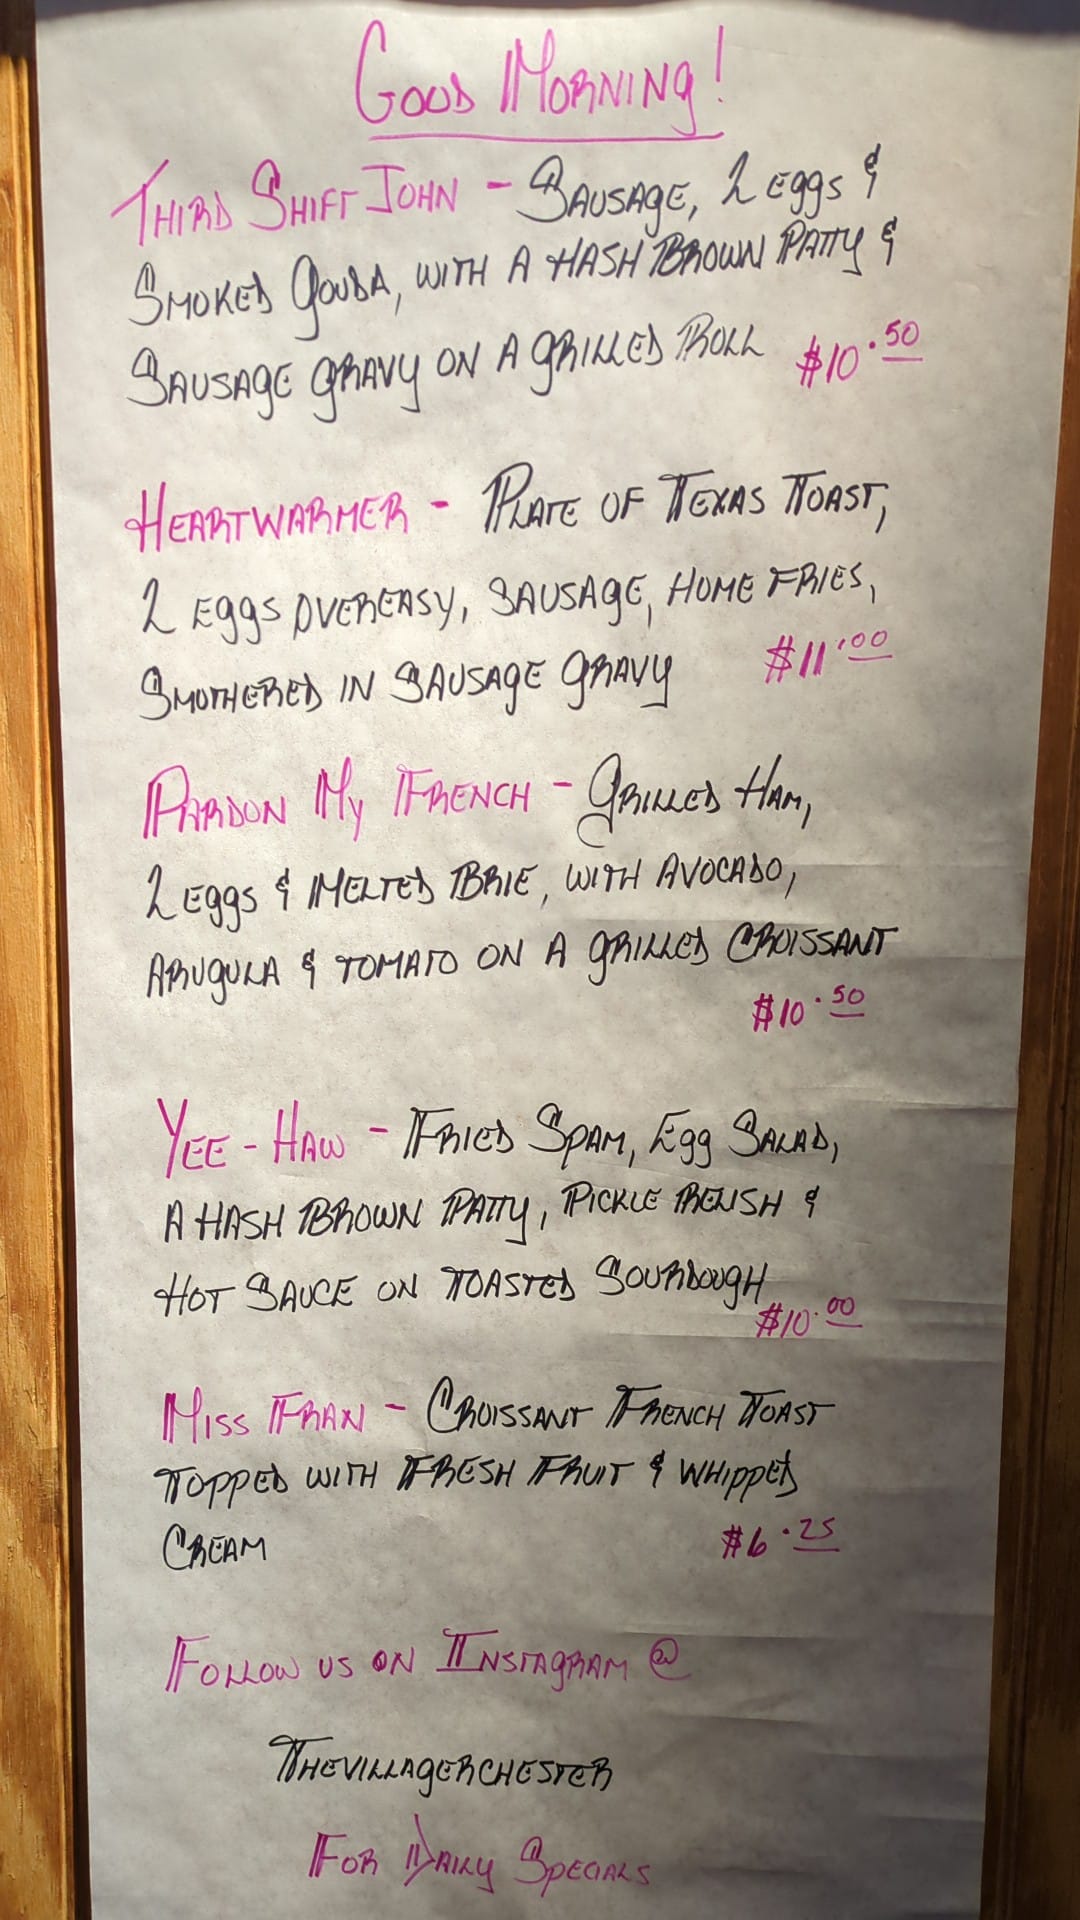 Good Morning!
Third Shift John - Sausage, 2 eggs &
Smoked Gouda, with a Hash Brown Patty &
Sausage gravy on a grilled Roll $10.50
Heartwarmer - Plate of Texas Toast,
2 eggs overeasy, sausage, home fries,
Smothered in sausage gravy $11.00
Pardon My French - Grilled Ham,
2 eggs & Melted Brie, with avocado,
arugula & tomato on a grilled croissant
$10.50
Yee-Haw - Fried Spam, Egg Salad,
a Hash Brown Patty, Pickle Relish &
Hot Sauce on Toasted Sourdough
$10.00
Miss Fran - Croissant French Toast
Topped with Fresh Fruit & whipped
Cream $6.25
Follow us on Instagram @
Thevillagerchester
For Daily Specials